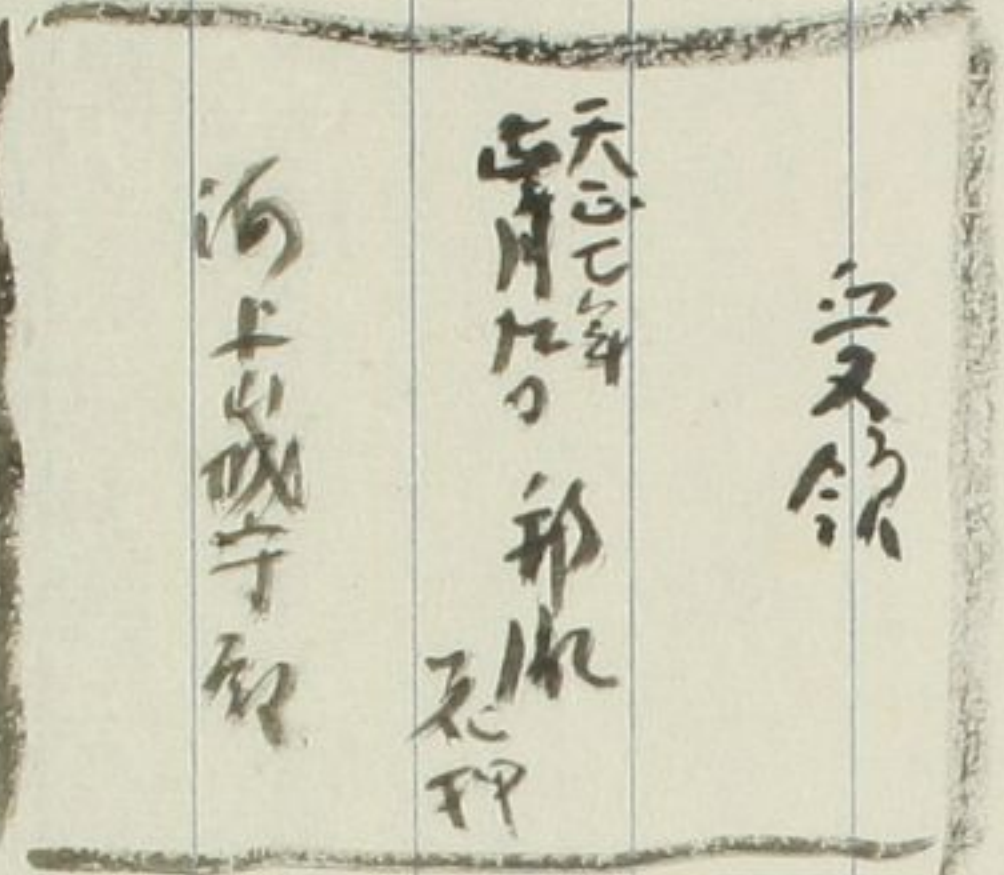 受領
天正七年
正月九日　邦胤
花押
河上山城守殿